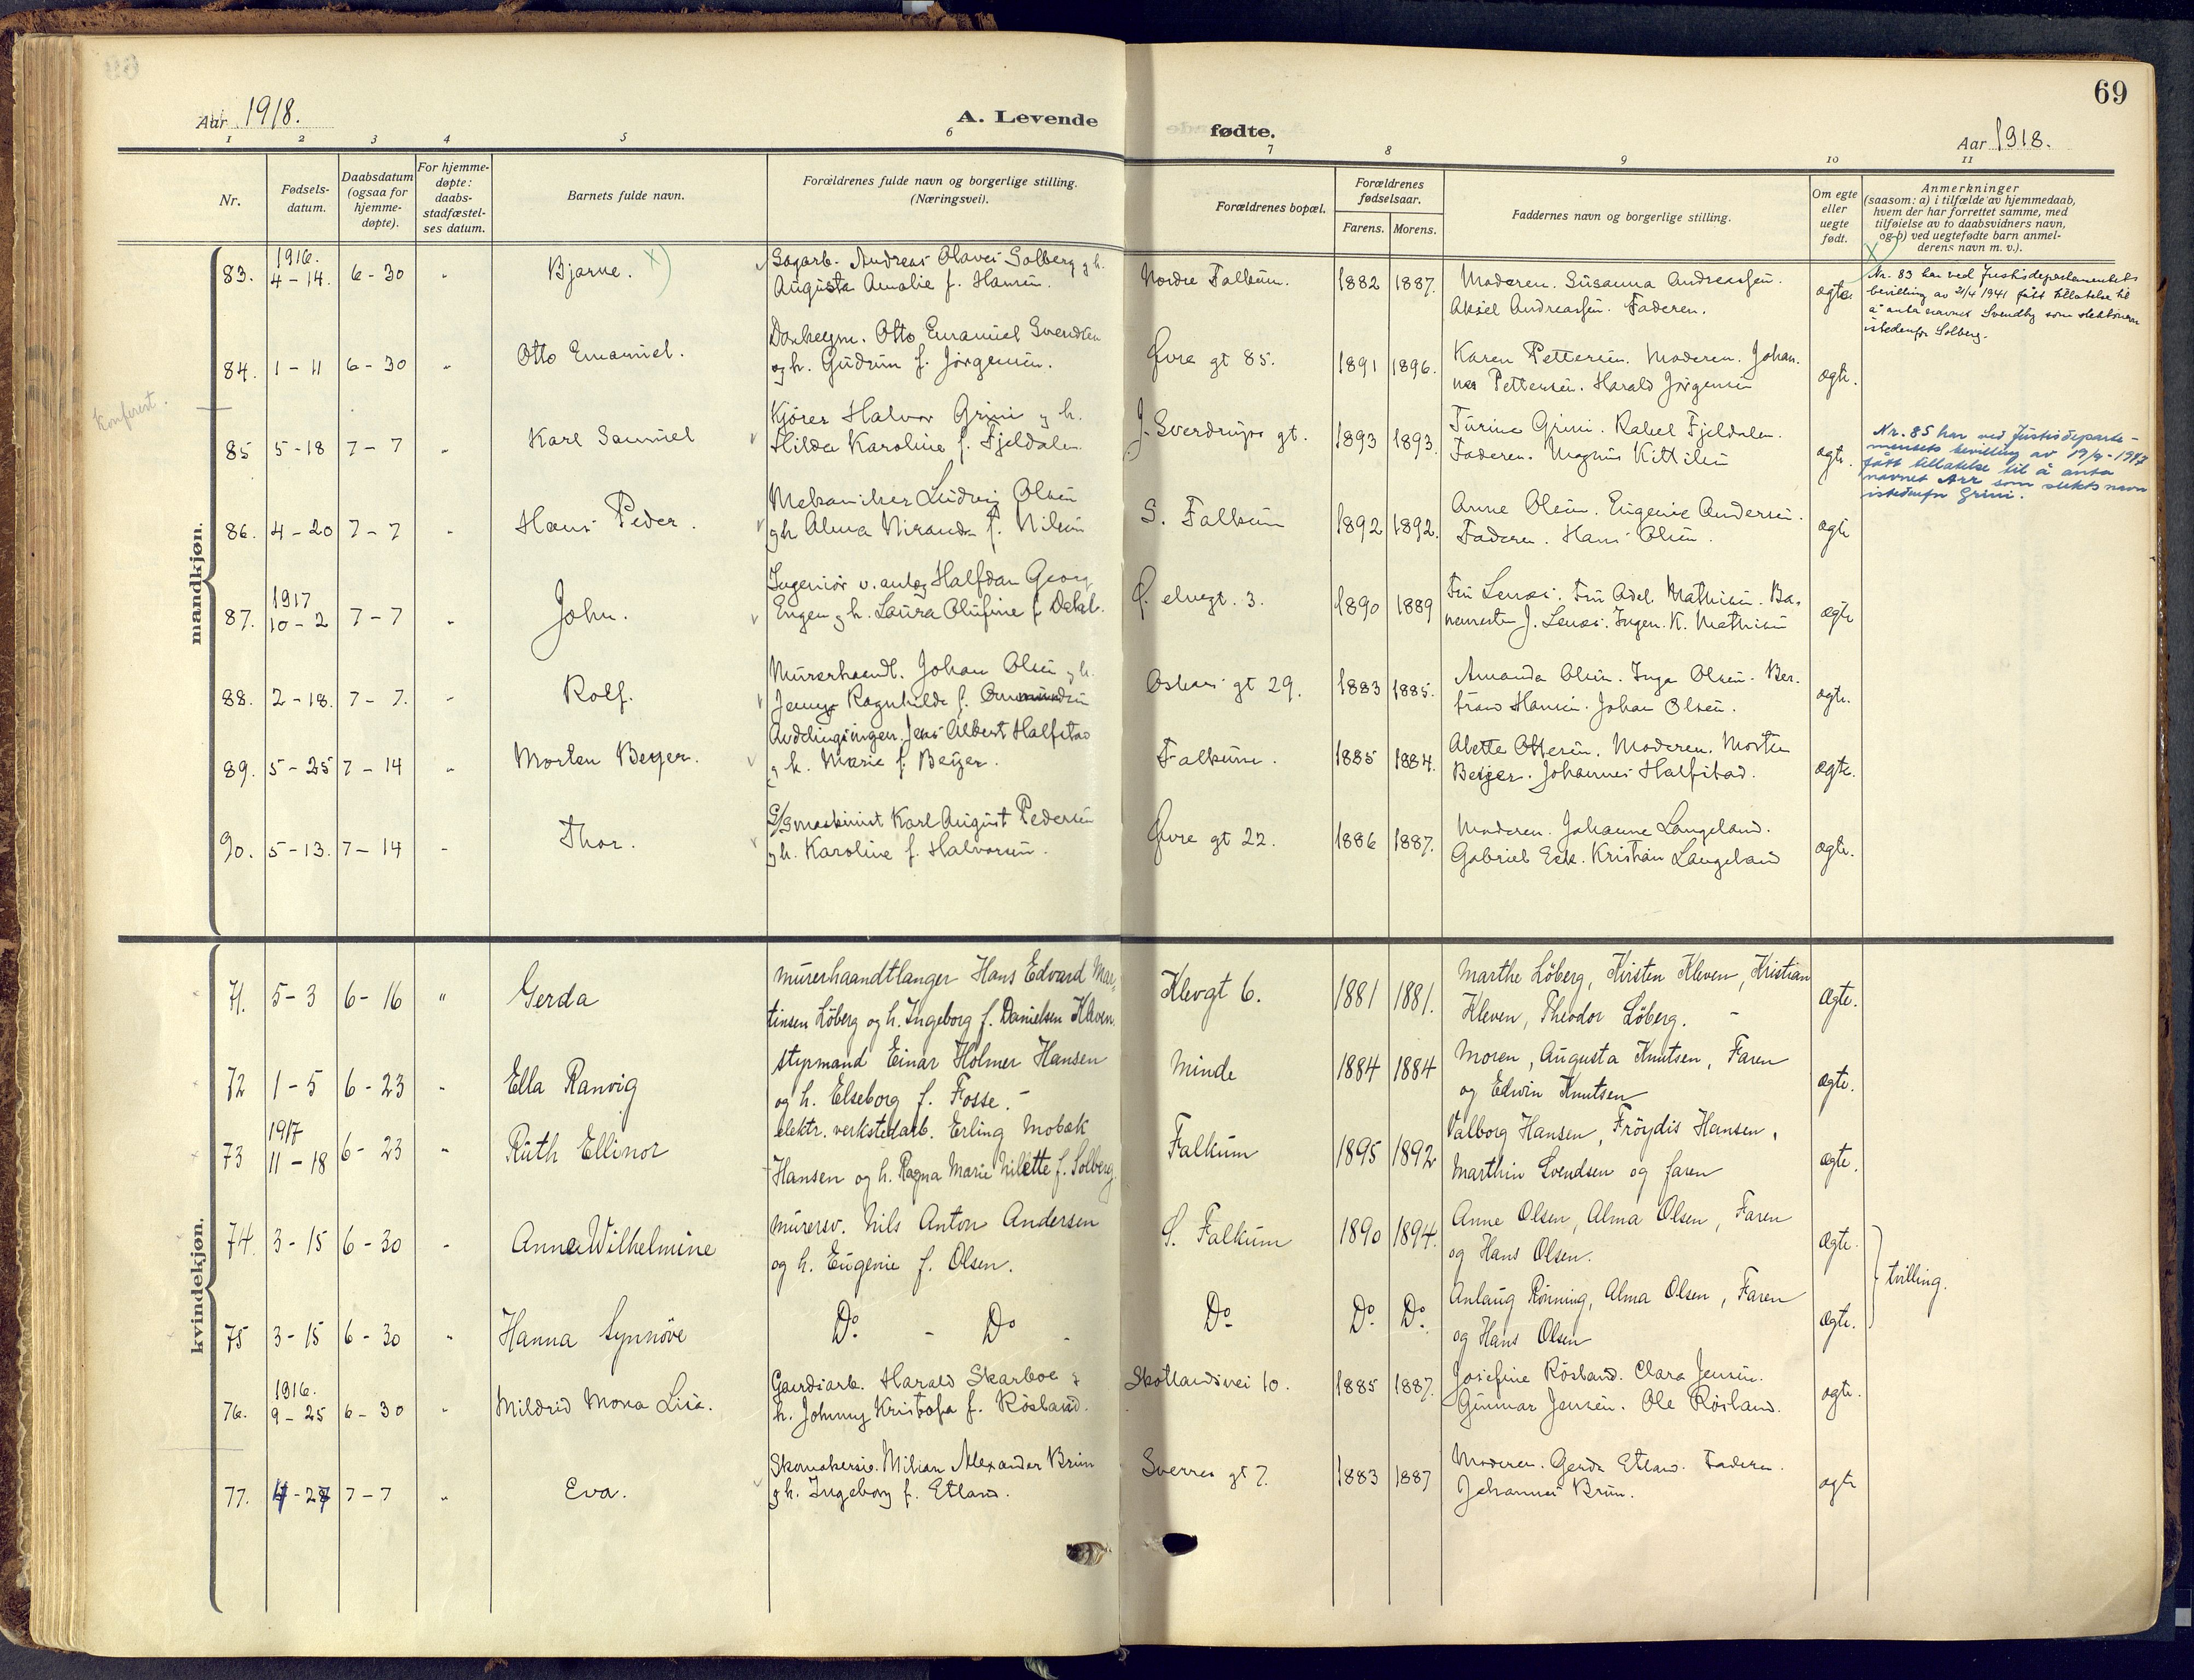 69
Aar 1918.
A. Levende
fødte.
Aar 1918.
1 2 3 4 5 6 7 8 9 10 11
Nr.
Fødsels-
datum.
Daabsdatum
(ogsaa for
hjemme-
døpte).
For hjemme-
døpte:
daabs-
stadfæstel-
ses datum.
Barnets fulde navn.
Forældrenes fulde navn og borgerlige stilling.
(Næringsvei).
Forældrenes bopæl.
Forældrenes
fødselsaar.
Farens. Morens.
Faddernes navn og borgerlige stilling.
Om egte
eller
uegte
født.
Anmerkninger
(saasom: a) i tilfælde av hjemmedaab,
hvem der har forrettet samme, med
tilføielse av to daabsvidners navn,
og b) ved uegtefødte barn anmel-
derens navn m. v.).
mandkjøn.
83. 1916. 4-14. 6-30 " Bjarne. X)
Sagarb. Andreas Olaves Solberg g h.
Augusta Amalie f. Hansen.
Nordre Falkum. 1882 1887.
Moderen. Susanna Andreassen.
Aksel Andreassen. Faderen.
ægte
X
Nr. 83 har ved Justisdepartementets
bevilling av 21/4 1941 fått tillatelse til
å anta navnet Svendby som slektsnavn
istedenfor Solberg.
84. 1-11 6-30 " Otto Emanuel.
Otto Emanuel Svendsen
og h. Gudrun f. Jørgensen.
Øvre gt 85. 1891 1896.
Karen Pettersen. Moderen. Johan-
nes Pettersen. Harald Jørgensen
ægte.
Konferert.
85 5-18 7-7 " Karl Samuel
Kjører Halvor Grini g h.
Hilda Karoline f. Fjeldalen
J. Sverdrups gt. 1893 1893.
Turine Grini. Rakel Fjeldalen.
Faderen. Magnus Kittilsen
ægte.
Nr. 85 har ved Justisdeparte-
mentets bevilling av 19/9-1947
fått tillatelse til å anta
navnet Arr som slektsnavn
istedenfor Grini.
86. 4-20 7-7 " Hans Peder.
Mekaniker Ludvig Olsen
gh Alma Niranda f. Nilsen
S. Falkum 1892 1892.
Anne Olsen. Eugenie Andersen.
Faderen. Hans Olsen.
ægte
87. 1917 10-2 7-7 " John.
Ingeniør v. anlæg Halfdan Georg
Engen g h. Laura Olufine f Dahl.
elvegt. 3. 1890 1889
Fru Lenæs. Fru Adel Mathisen. Ba-
nemester J. Lenæs. Ingen. K. Mathisen
ægte
88. 2-18. 7-7. " Rolf.
Murerhaandl. Johan Olsen g h.
Jenny Ragnhilde f.
Oskars gt 29. 1883 1885.
Amanda Olsen. Inga Olsen. Ber-
trans Hansen. Johan Olsen.
ægte.
89. 5-25 7-14 " Morten Beyer.
Avdelingsingen. Jens Albert Halfstad
g h. Marie f. Beyer.
Falkum. 1885 1884.
Abette Ottesen. Moderen. Morten
Beyer. Johannes Halfstad.
ægte.
90. 5-13. 7-14 " Thor.
D/S maskinist Karl August Pedersen
g h. Karoline f. Halvorsen.
Øvre gt 22. 1886 1887.
Moderen. Johanne Langeland.
Gabriel Eek. Kristian Langeland
ægte.
kvindekjøn.
71. 5-3 6-16 " Gerda
murerhaandtlanger Hans Edvard Mar-
tinsen Löberg og h. Ingeborg f. Danielsen Kleven.
Klevgt 6. 1881 1881.
Marthe Löberg, Kirsten Kleven, Kristian
Kleven, Theodor Löberg. -
ægte.
72 1-5 6-23 " Ella Ranvig
styrmand Einar Holmer Hansen
og h. Elseborg f. Fosse. -
Minde 1884 1884
Moren, Augusta Knutsen, Faren
og Edwin Knutsen
ægte.
73 1917 11-18 6-23 " Ruth Ellinor
elektr. verkstedarb. Erling Mobæk
Hansen og h. Ragna Marie Nilette f. Solberg
Falkum 1895 1892
Valborg Hansen, Fröydis Hansen,
Marthin Svendsen og faren
ægte.
74. 3-15 6-30 " Anne Wilhelmine
murersv. Nils Anton Andersen
og h. Eugenie f. Olsen.
S. Falkum 1890 1894.
Anne Olsen, Alma Olsen, Faren
og Hans Olsen.
ægte.
tvilling.
75 3-15 6-30 " Hanna Synnöve
Do - Do -
Do Do Do
Anlaug Rönning, Alma Olsen, Faren
og Hans Olsen
ægte.
76. 1916. 9-25 6-30 " Mildrid Mona Lisa.
Gaardsarb. Harald Skarboe g
h. Johnny Kristofa f. Røsland.
Skotlandsvei 10. 1885 1887.
Josefine Røsland. Clara Jensen.
Gunnar Jensen. Ole Røsland.
ægte.
77. 4-27 7-7 " Eva.
Skomakersv. Milian Alexander Brun
g h. Ingeborg f. Etland.
Sverres gt 7. 1883 1887
Moderen. Gerda Etland. Faderen.
Johannes Brun.
ægte